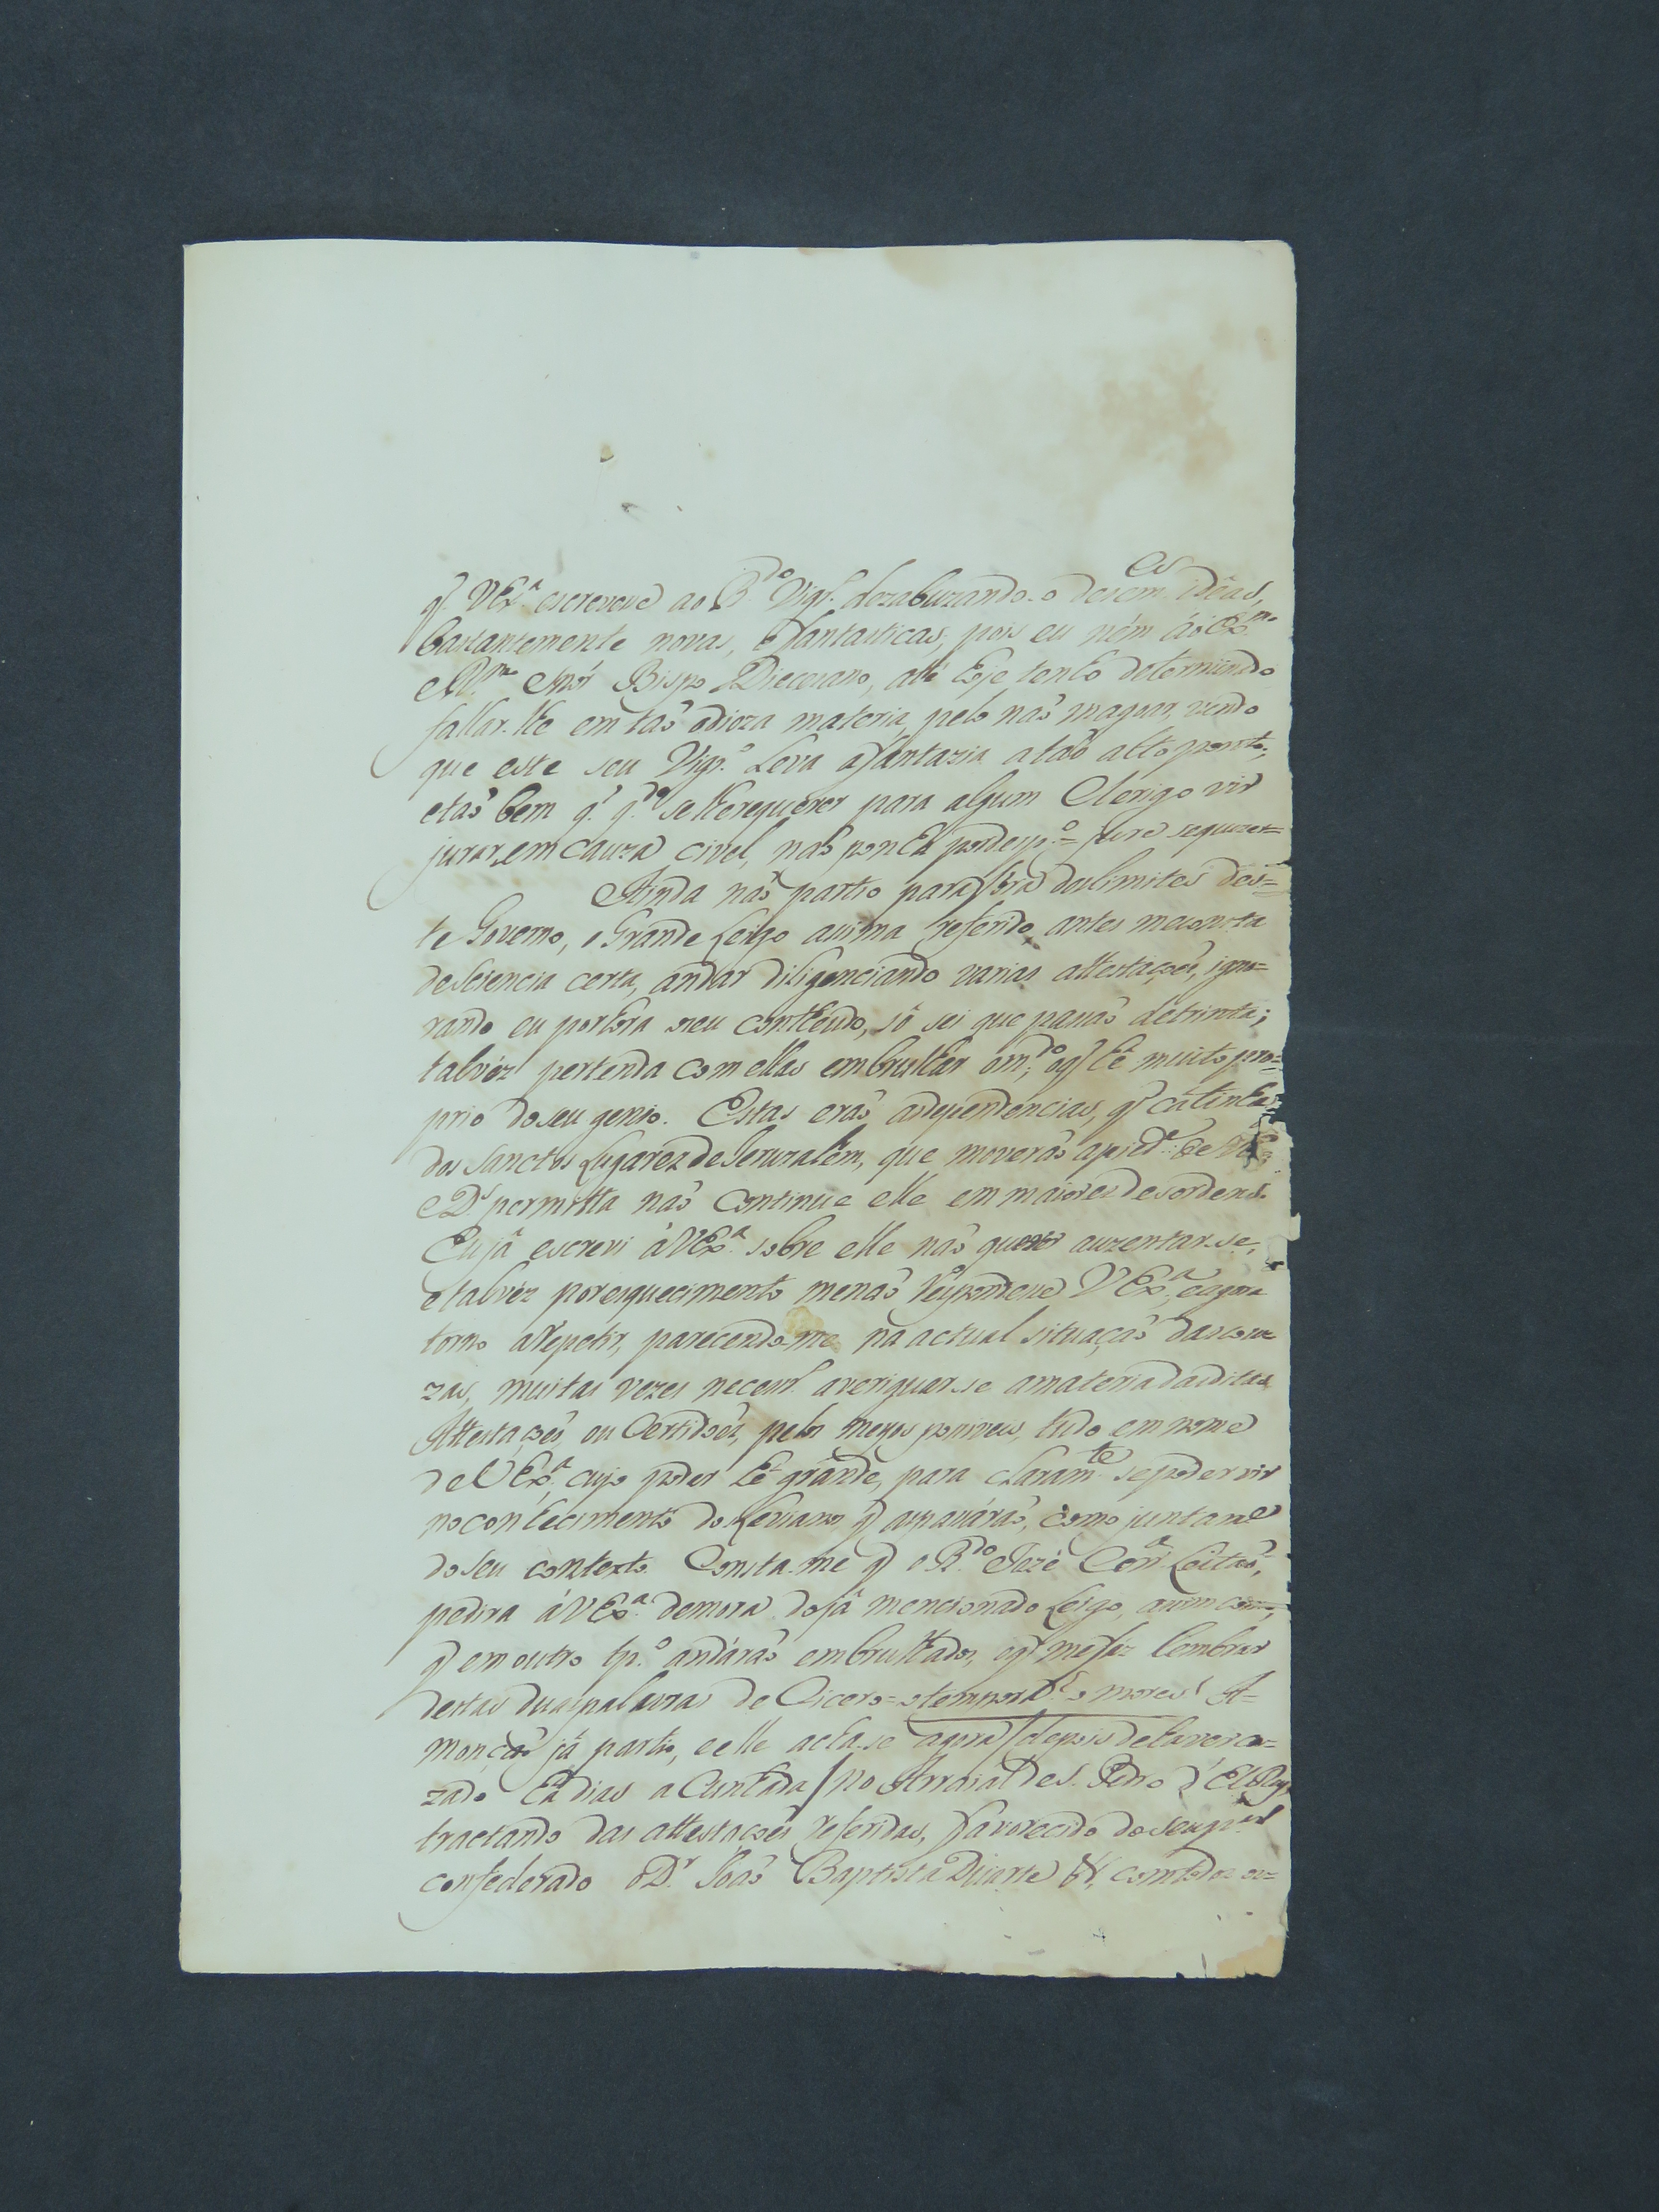 q̃. VEx.ª escreveve ao R.do Vigr.º dezabuzando-o de sem.es idêas,
bastantemente novas, e fantasticas, pois eu ném ao Ex.mo
e R.mo Snõr Bispo Diecezano, até hoje tenho determinado
fallar-lhe em taõ odioza materia, pelo naõ magoar, vendo
que este seu Vigr.º Leva a fantazia a taõ alto ponto;
e taõ bem q̃. q.do se lhe requerer para algum Clerigo vir
jurar, em cauza civel, naõ ponha por desp.º = jure se quizer=
Ainda naõ partio para fóra dos limites des=
te Governo, o Grande Leigo acima referido, antes me consta
de sciencia certa, andar diligenciando varias attestaçoẽs, igno=
rando eu por hora o seu contheudo, só sei que passaõ de trinta;
talvéz pertenda com ellas embrulhar o m.do, o q̃ hé muito pro=
prio do seu genio. Estas eraõ as dependencias, q̃ cá tinha
dos Sanctos Lugarez de Jeruzalém, que moveraõ a pied.e de VEx.ª;
e D.s permitta naõ continue elle em maiores desordens.
Eu já escrevi á VEx.ª sobre elle naõ querer auzentar-se,
e talvéz por esquecimento me naõ respondeve VEx.ª, e agora
torno a repetir, parecendo-me na actual situaçaõ das cou
zas, muitas vezes necess.º averiguar-se a materia das ditas
Attestaçoẽs, ou Certidoẽs, pelos meyos possiveis, tudo em nome
de VEx.ª, cujo poder hé grande, para claram.te se poder vir
no conhecimento dos Levianos q̃ as passáraõ, como juntam.e
do seu contexto. Consta-me q̃ o R.do Jozé Corr.ª Leitaõ,
pedira á VEx.ª demora do já mencionado Leigo, assim como,
q̃ em outro tp.º andáraõ embrulhados, o q̃ me fez lembrar
destas duas palavras de Cicero = o tempora! o mores! A=
monçaõ já partio, e elle acha-se agora / depois de haver cru=
zado há dias a Chapada / no Arraial de S. Pedro d'El Rey,
tractando das attestaçoẽs referidas, favorecido do seu p.al
confederado o D.r Joaõ Baptista Duarte &ª, com todos os=